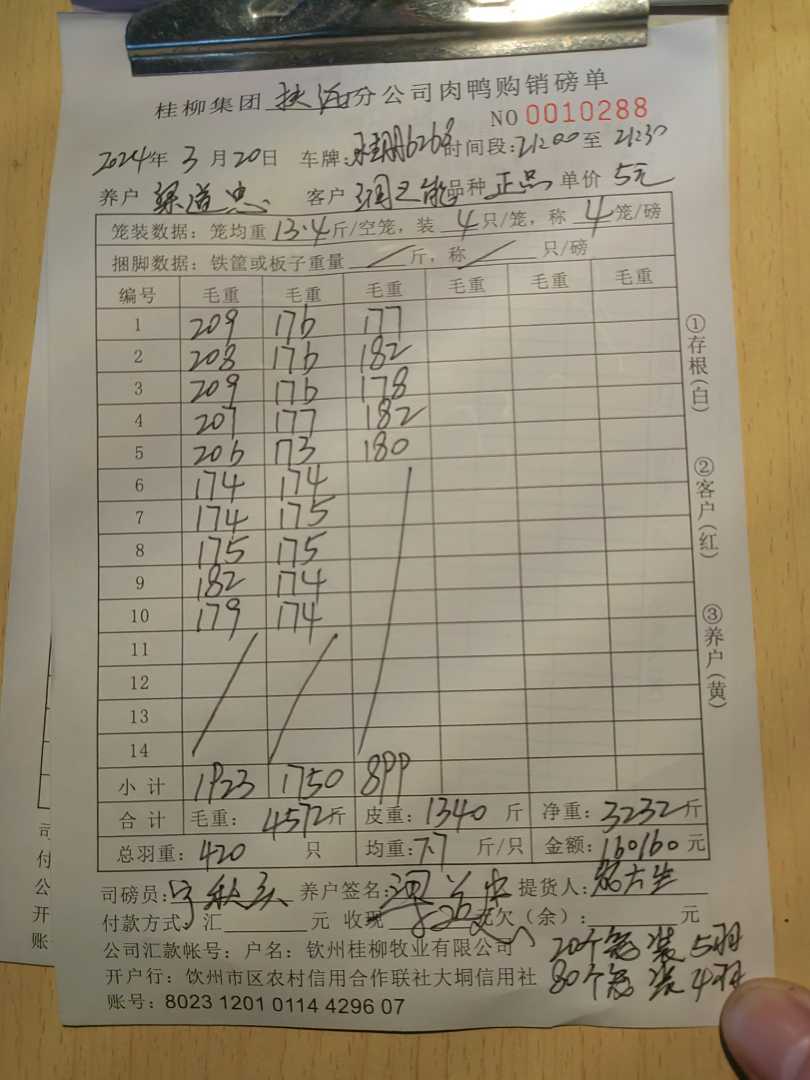 桂柳集团 扶 分公司肉鸭购销磅单
NO 0010288
2024年 3月 20日 车牌: 6268 时间段: 21:00 至 21:30
养户 梁道忠 客户 品种 正品 单价 5元
笼装数据: 笼均重 13.4 斤/空笼, 装 4 只/笼, 称 4 笼/磅
捆脚数据: 铁筐或板子重量 / 斤, 称 / 只/磅
编号 毛重 毛重 毛重 毛重 毛重 毛重
1 209 176 177
2 208 176 182
3 209 176 178
4 207 177 182
5 206 173 180
6 174 174
7 174 175
8 175 175
9 182 174
10 179 174
11
12
13
14
小计 1923 1750 899
合计 毛重: 4572斤 皮重: 1340 斤 净重: 3232斤
总羽重: 420 只 均重: 7.7 斤/只 金额: 160160 元
司磅员: 养户签名: 提货人:
付款方式: 汇 元 收现 元欠(余): 元
公司汇款帐号: 户名: 钦州桂柳牧业有限公司
20个笼装5羽
开户行: 钦州市区农村信用合作联社大垌信用社
80个笼装4羽
账号: 8023 1201 0114 4296 07
①存根(白)
②客户(红)
③养户(黄)
司
付
公
开
账